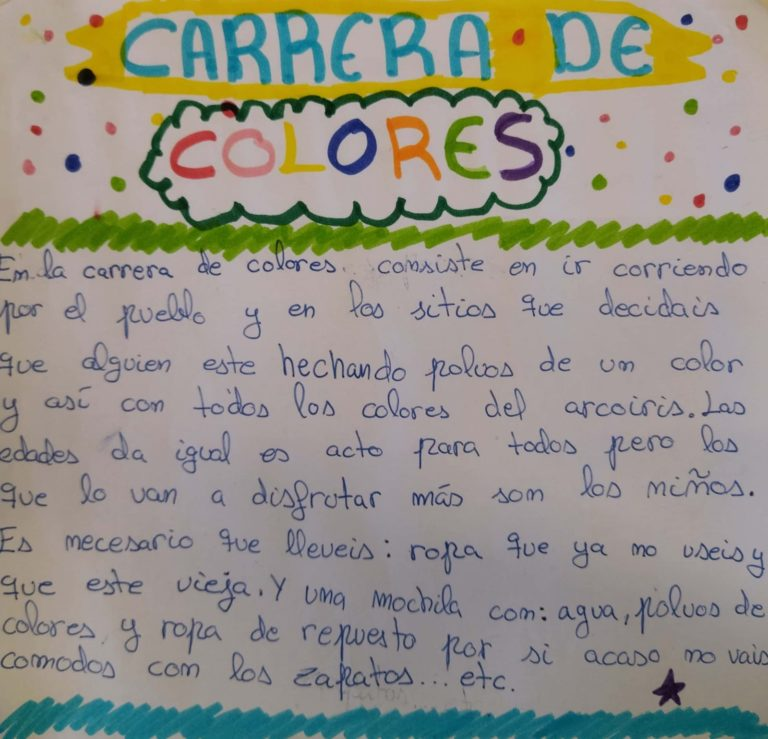 CARRERA DE
COLORES
En la carrera de colores consiste en ir corriendo
por el pueblo y en los sitios que decidais
que alguien este hechando polvos de un color
y así con todos los colores del arcoiris. Las
edades da igual es acto para todos pero los
que lo van a disfrutar más son los niños.
Es necesario que lleveis: ropa que ya no useis y
que este vieja. Y una mochila con: agua, polvos de
colores, y ropa de repuesto por si acaso no vais
comodos con los zapatos... etc.